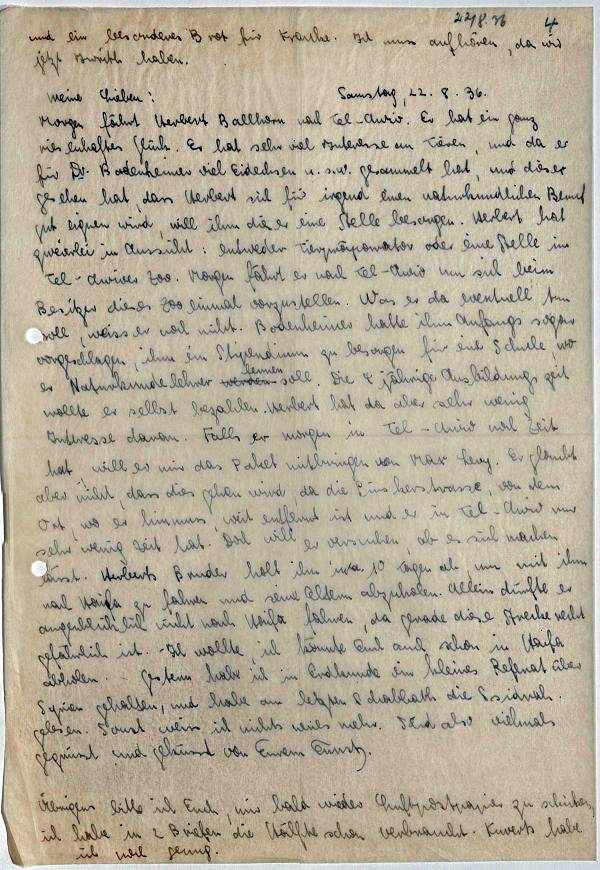 22/8.36 4
und ein besonderes Brot für Kranke. Ich muss aufhören, da wir
jetzt haben.
Meine Lieben! Samstag, 22. 8. 36.
Morgen fährt Herbert Ballhorn nach Tel-Awiw. Er hat ein ganz
riesenhaftes Glück. Er hat sehr viel Interesse an Tieren, und da er
für Dr. Bodenheimer viel Eidechsen u.s.w. gesammelt hat, und dieser
gesehen hat, dass Herbert sich für irgend einen naturkundlichen Beruf
gut eignen wird, will ihm dieser eine Stelle besorgen. Herbert hat
zweierlei in Aussicht: entweder Tierpräparator oder eine Stelle im
Tel-Awiwer Zoo. Morgen fährt er nach Tel-Awiw um sich beim
Besitzer dieses Zoo einmal vorzustellen. Was er da eventuell tun
soll, weiss er noch nicht. Bodenheimer hatte ihm Anfangs sogar
vorgeschlagen, ihm ein Stipendium zu besorgen für eine Schule, wo
er Naturkundelehrer werden lernen soll. Die 4 jährige Ausbildungszeit
wollte er selbst bezahlen. Herbert hat da aber sehr wenig
Interesse daran. Falls er morgen in Tel-Awiw noch Zeit
hat, will er mir das Paket mitbringen von Max Levy. Er glaubt
aber nicht, dass dies gehen wird, da die Pinskerstrasse, von dem
Ort, wo er hinmuss, weit entfernt ist und er in Tel-Awiw nur
sehr wenig Zeit hat. Doch will er versuchen, ob es sich machen
lässt. Herberts Bruder holt ihn in 10 Tagen ab, um mit ihm
nach Haifa zu fahren und seine Eltern abzuholen. Allein dürfte er
augenblicklich nicht nach Haifa fahren, da gerade diese Strecke recht
gefährlich ist. - Ich wollte, ich könnte Euch auch schon in Haifa
abholen. - Gestern habe ich in Erdkunde ein kleines Referat über
Syrien gehalten, und habe am letzten Schabbath die Ssidrah
gelesen. Sonst weiss ich nichts neues mehr. Seid also vielmals
gegrüsst und geküsst von Eurem Ernst.
Übrigens bitte ich Euch, mir bald wieder Luftpostpapier zu schicken,
ich habe in 2 Briefen die Hälfte schon verbraucht. Kuverts habe
ich noch genug.